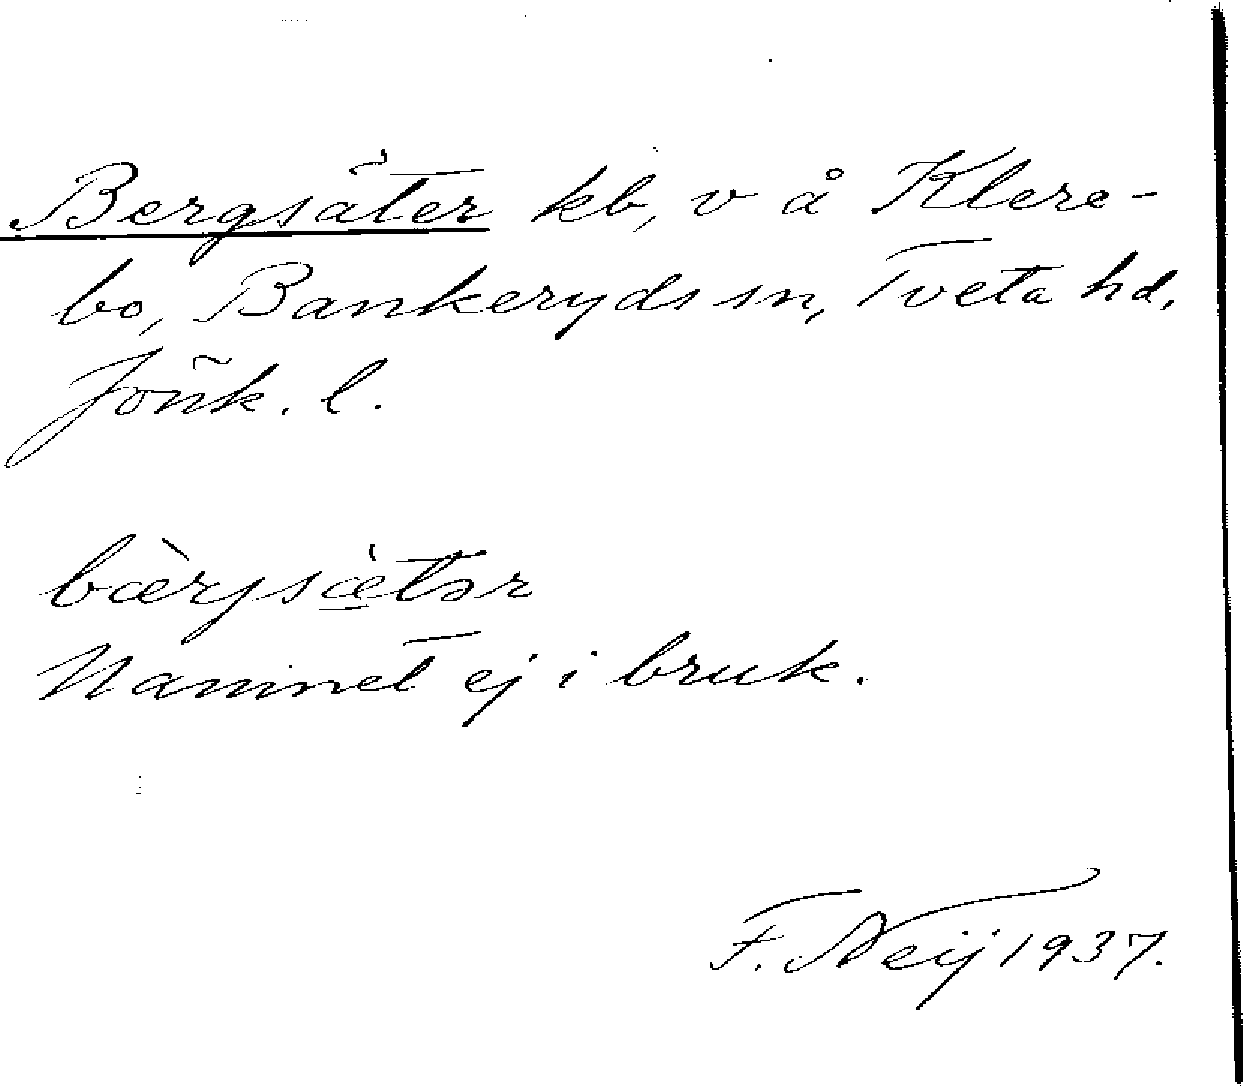 Bergsäter kb, v å Klere-
bo, Bankeryds sn, Tveta hd,
Jönk. l.
bæ̀rjsæ̲̍tər
Namnet ej i bruk.
F. Neij 1937.